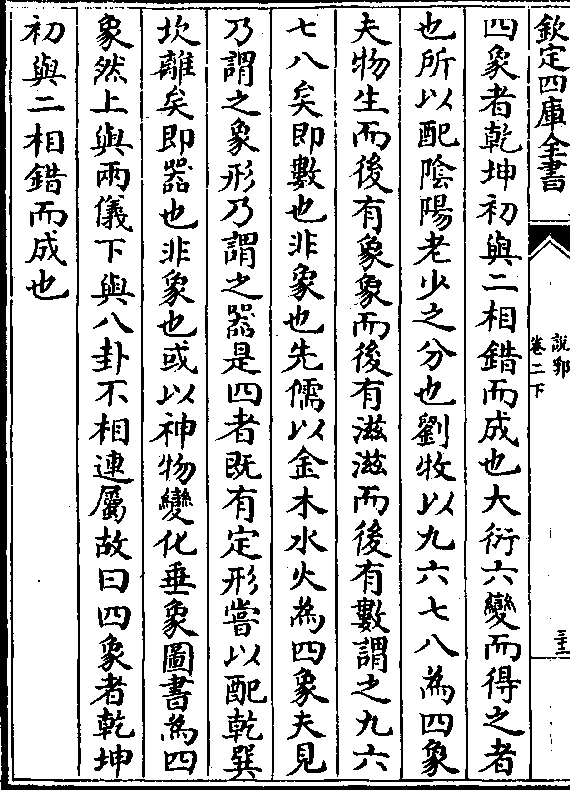 欽定四庫全書
說郛
卷二下
三十三
四象者乾坤初與二相錯而成也大衍六變而得之者
也所以配陰陽老少之分也劉牧以九六七八為四象
夫物生而後有象象而後有滋滋而後有數謂之九六
七八矣即數也非象也先儒以金木水火為四象夫見
乃謂之象形乃謂之器是四者既有定形嘗以配乾巽
坎離矣即器也非象也或以神物變化垂象圖書為四
象然上與兩儀下與八卦不相連屬故曰四象者乾坤
初與二相錯而成也